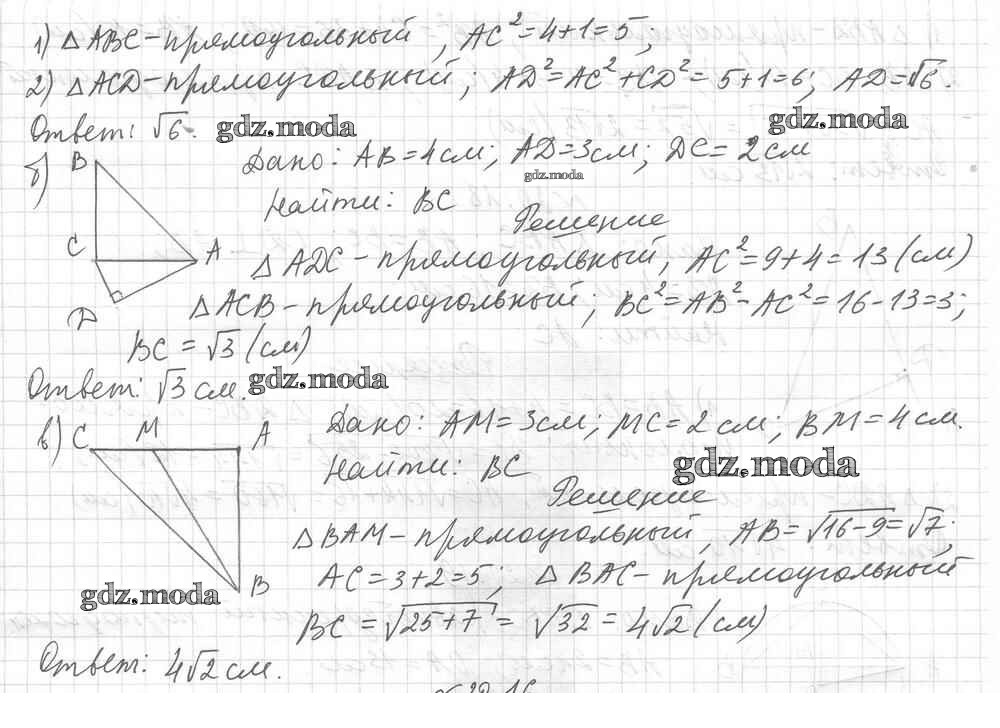 1) △ABC – прямоугольный, AC² = 4+1 = 5;
2) △ACD – прямоугольный; AD² = AC² + CD² = 5+1 = 6; AD = √6.
Ответ: √6.
gdz.moda
gdz.moda
б) B
C
A
D
Дано: AB = 4 см; AD = 3 см; DC = 2 см
gdz.moda
Найти: BC
Решение
△ADC – прямоугольный, AC² = 9+4 = 13 (см)
△ACB – прямоугольный; BC² = AB² – AC² = 16 – 13 = 3;
BC = √3 (см)
Ответ: √3 см.
gdz.moda
в) C M A
B
Дано: AM = 3 см; MC = 2 см; BM = 4 см.
Найти: BC
gdz.moda
Решение
△BAM – прямоугольный, AB = √16–9 = √7;
AC = 3+2 = 5; △BAC – прямоугольный
gdz.moda
BC = √25+7 = √32 = 4√2 (см)
Ответ: 4√2 см.